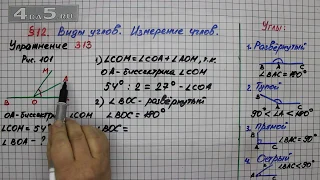 4ab5.ru
§12. Виды углов. Измерение углов.
Упражнение 313
Рис. 101
M
A
B
O
OA-биссектриса ∠COM
∠COM = 54°
∠BOA - ?
1) ∠COM = ∠COA + ∠AOM, т.к.
OA-биссектриса ∠COM
54° : 2 = 27° - ∠COA
2) ∠BOC - развёрнутый
∠BOC = 180°
∠BOC =
Углы:
1. Развёрнутый
B A C
∠BAC = 180°
2. Тупой
90° < ∠A < 180°
3. Прямой
∠BAC = 90°
4. Острый